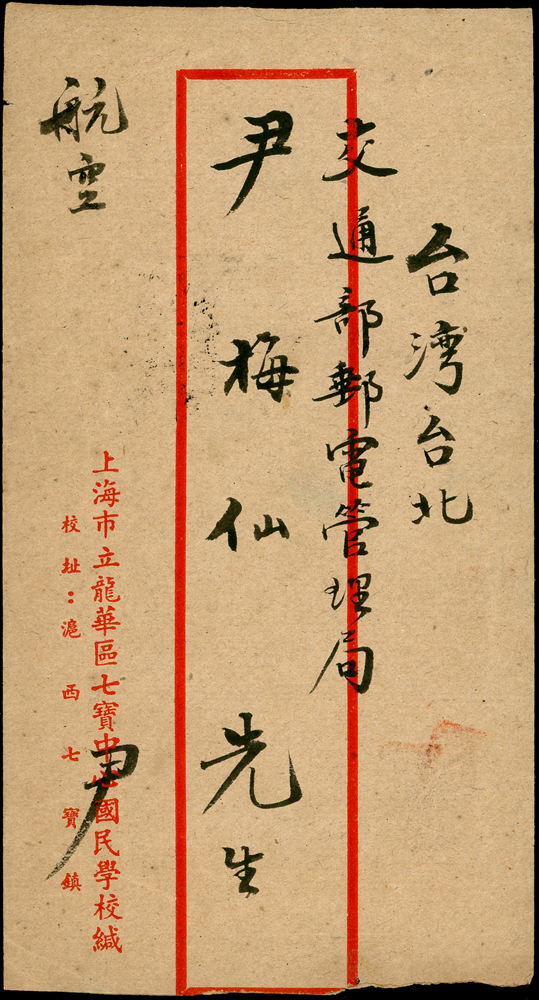 台湾台北
交通部郵電管理局
尹梅仙先生
航空
上海市立龍華區七寶中心國民學校緘
校址：滬西七寶鎮
尹